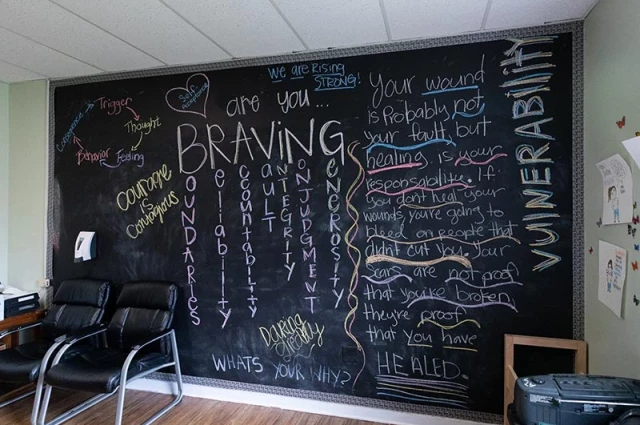 WE ARE RISING
STRONG!
Self
Trigger
Thought
Feeling
Behavior
Consequence
are you...
BRAVING
OUNDARIES
eliability
ccountability
AULT
NTEGRITY
ONJUDGMENT
ENEROSITY
courage
is
Contagious
Daring
greatly
WHATS YOUR WHY?
Your wound
is Probably not
your fault, but
healing is your
responsability. If
you dont heal your
wounds, you're going to
bleed on people that
didn't cut you. Your
scars are not proof
that you're broken,
they're proof
that you have
HEALED.
VUlNERABility